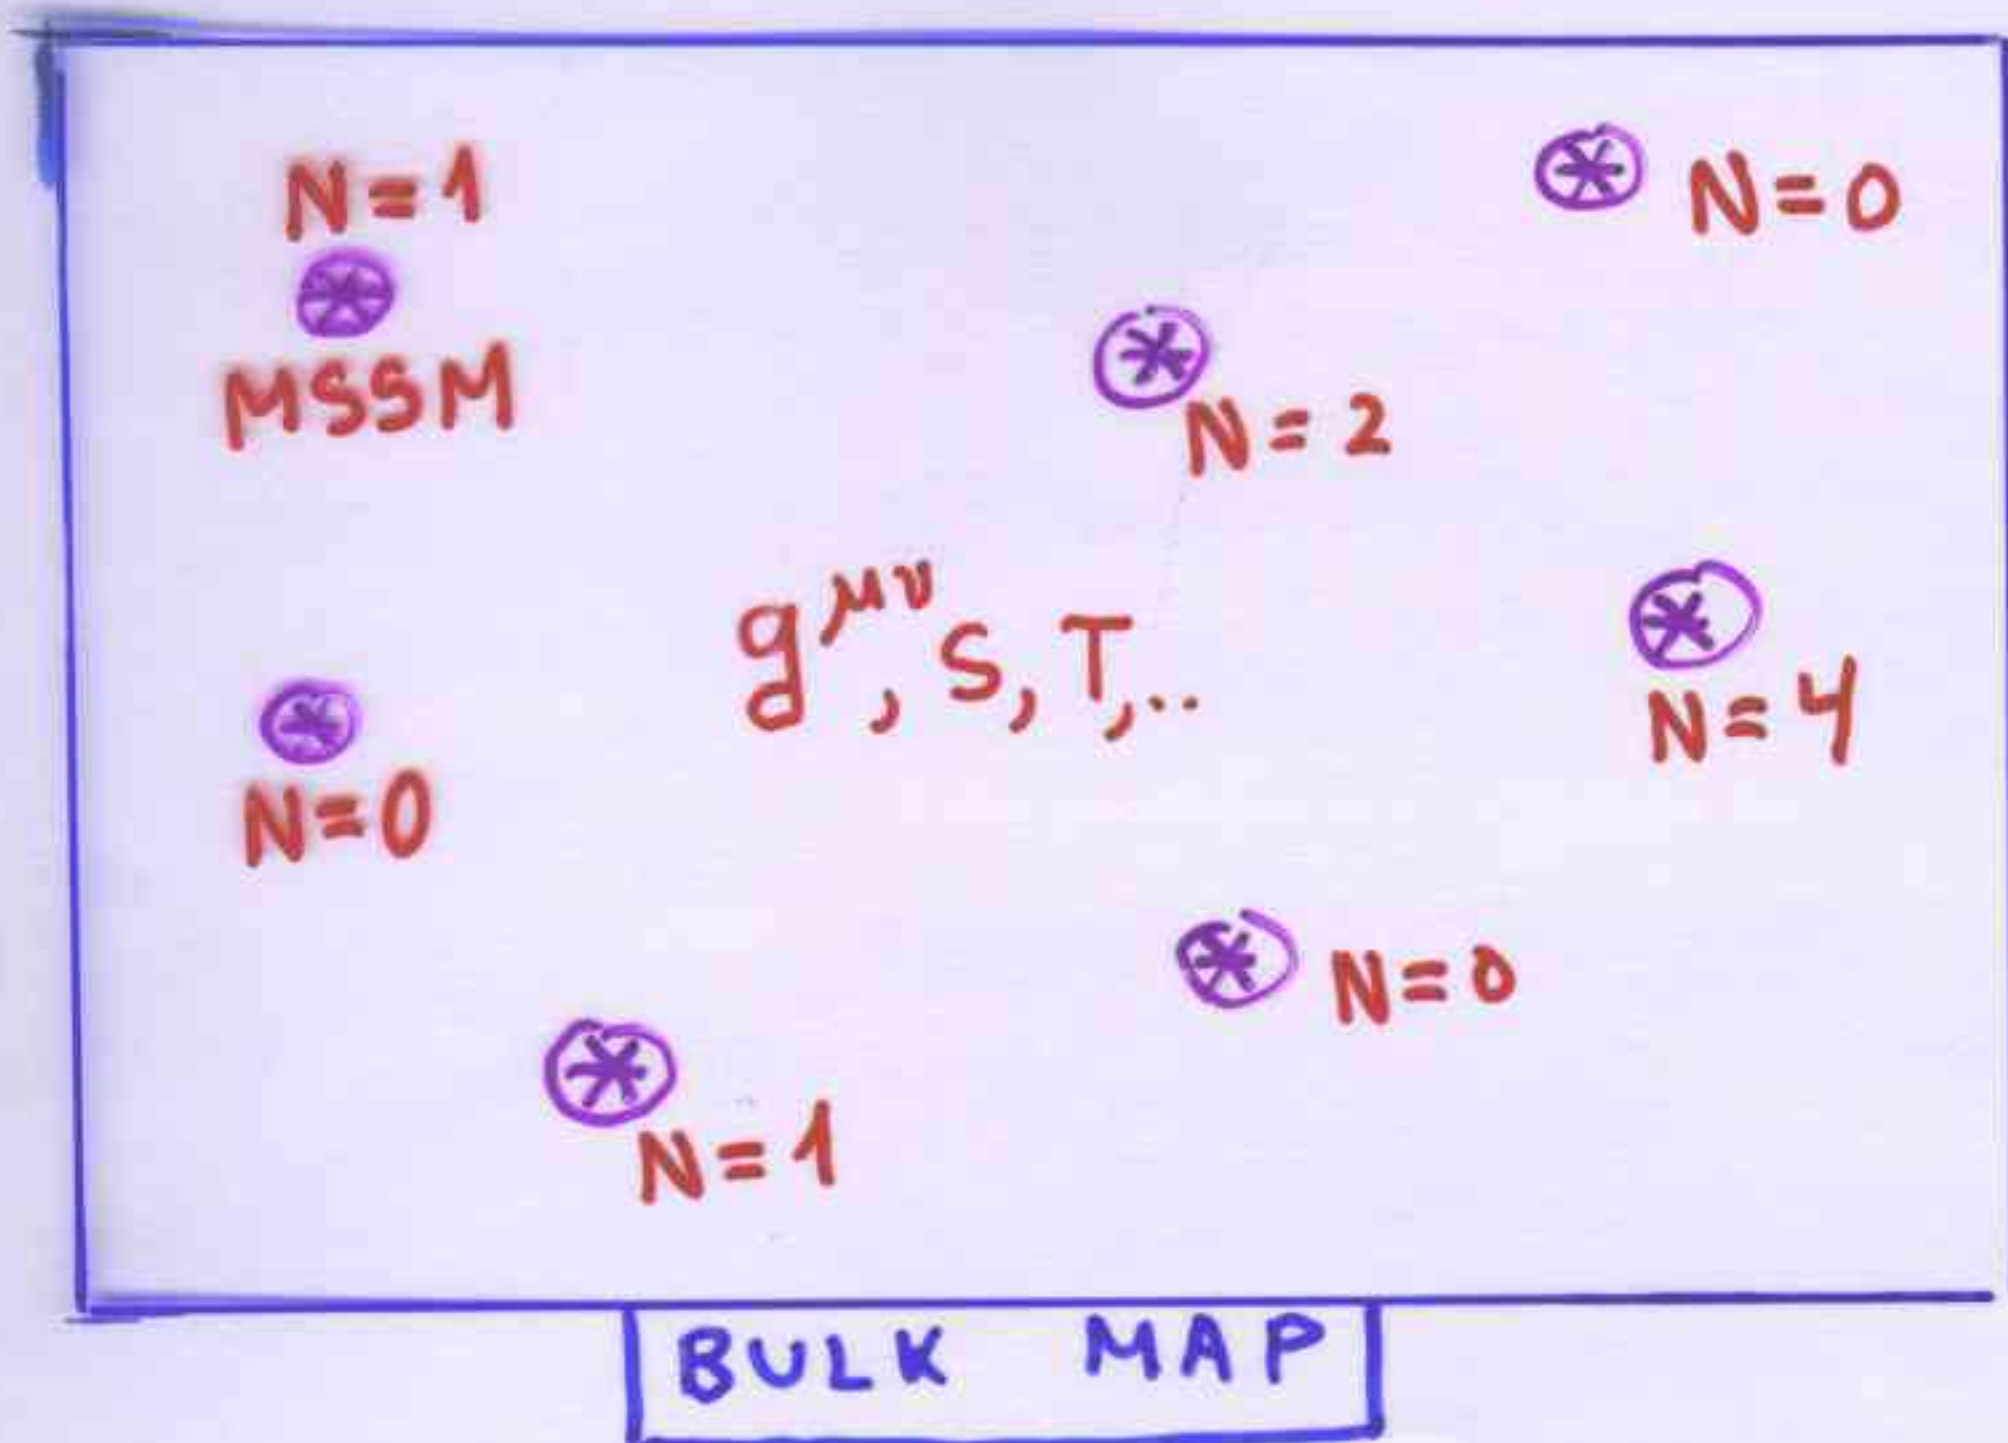 N=1
N=0
MSSM
N=2
g^{μν}, S, T, ..
N=4
N=0
N=0
N=1
BULK MAP